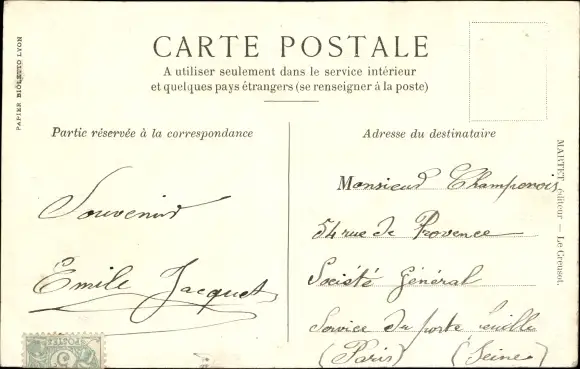 CARTE POSTALE
A utiliser seulement dans le service intérieur
et quelques pays étrangers (se renseigner à la poste)
PAPIER BIOLETTO LYON
Partie réservée à la correspondance
Souvenir
Emile Jacquet
POSTES
5
Adresse du destinataire
Monsieur Champenois
54 rue de Provence
Société Général
Service du porte feuille
(Paris) (Seine)
MARTET, éditeur — Le Creusot.